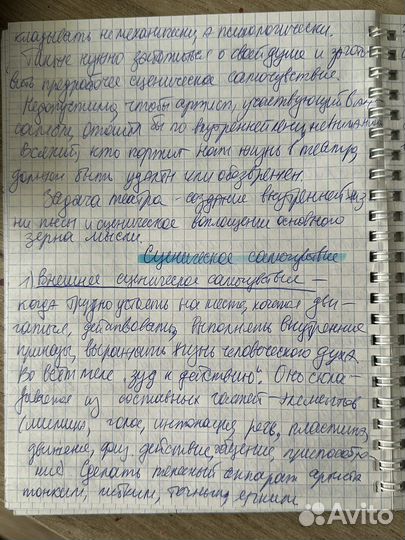 кладывать не механически, а психологически.
Также нужно заботиться о своей душе и
вать предрабочее сценическое самочувствие.
Недопустимо, чтобы артист, участвующий в
по внутренней
Всякий, кто портит нам жизнь в театре,
должен быть удален или обезврежен
Задача театра - создание внутренней жиз
ни пьесы и сценическое воплощение основного
зерна мысли
Сценическое самочувствие
1) Внешнее сценическое самочувствие -
когда трудно устоять на месте, хочется дви-
гаться, действовать, выполнять внутренние
приказы, выражать жизнь человеческого духа.
Во всём теле "зуд к действию". Оно скла-
дывается из составных частей - элементов
(мимика, голос, интонация, речь, пластика,
движение, физ. действие, общение, приспособле-
ние) Сделать телесный аппарат артиста
тонким, гибким, точным, ярким.
Avito